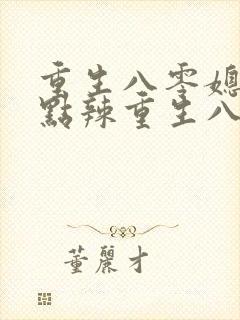 重生八零媳
點辣重生八
董麗才